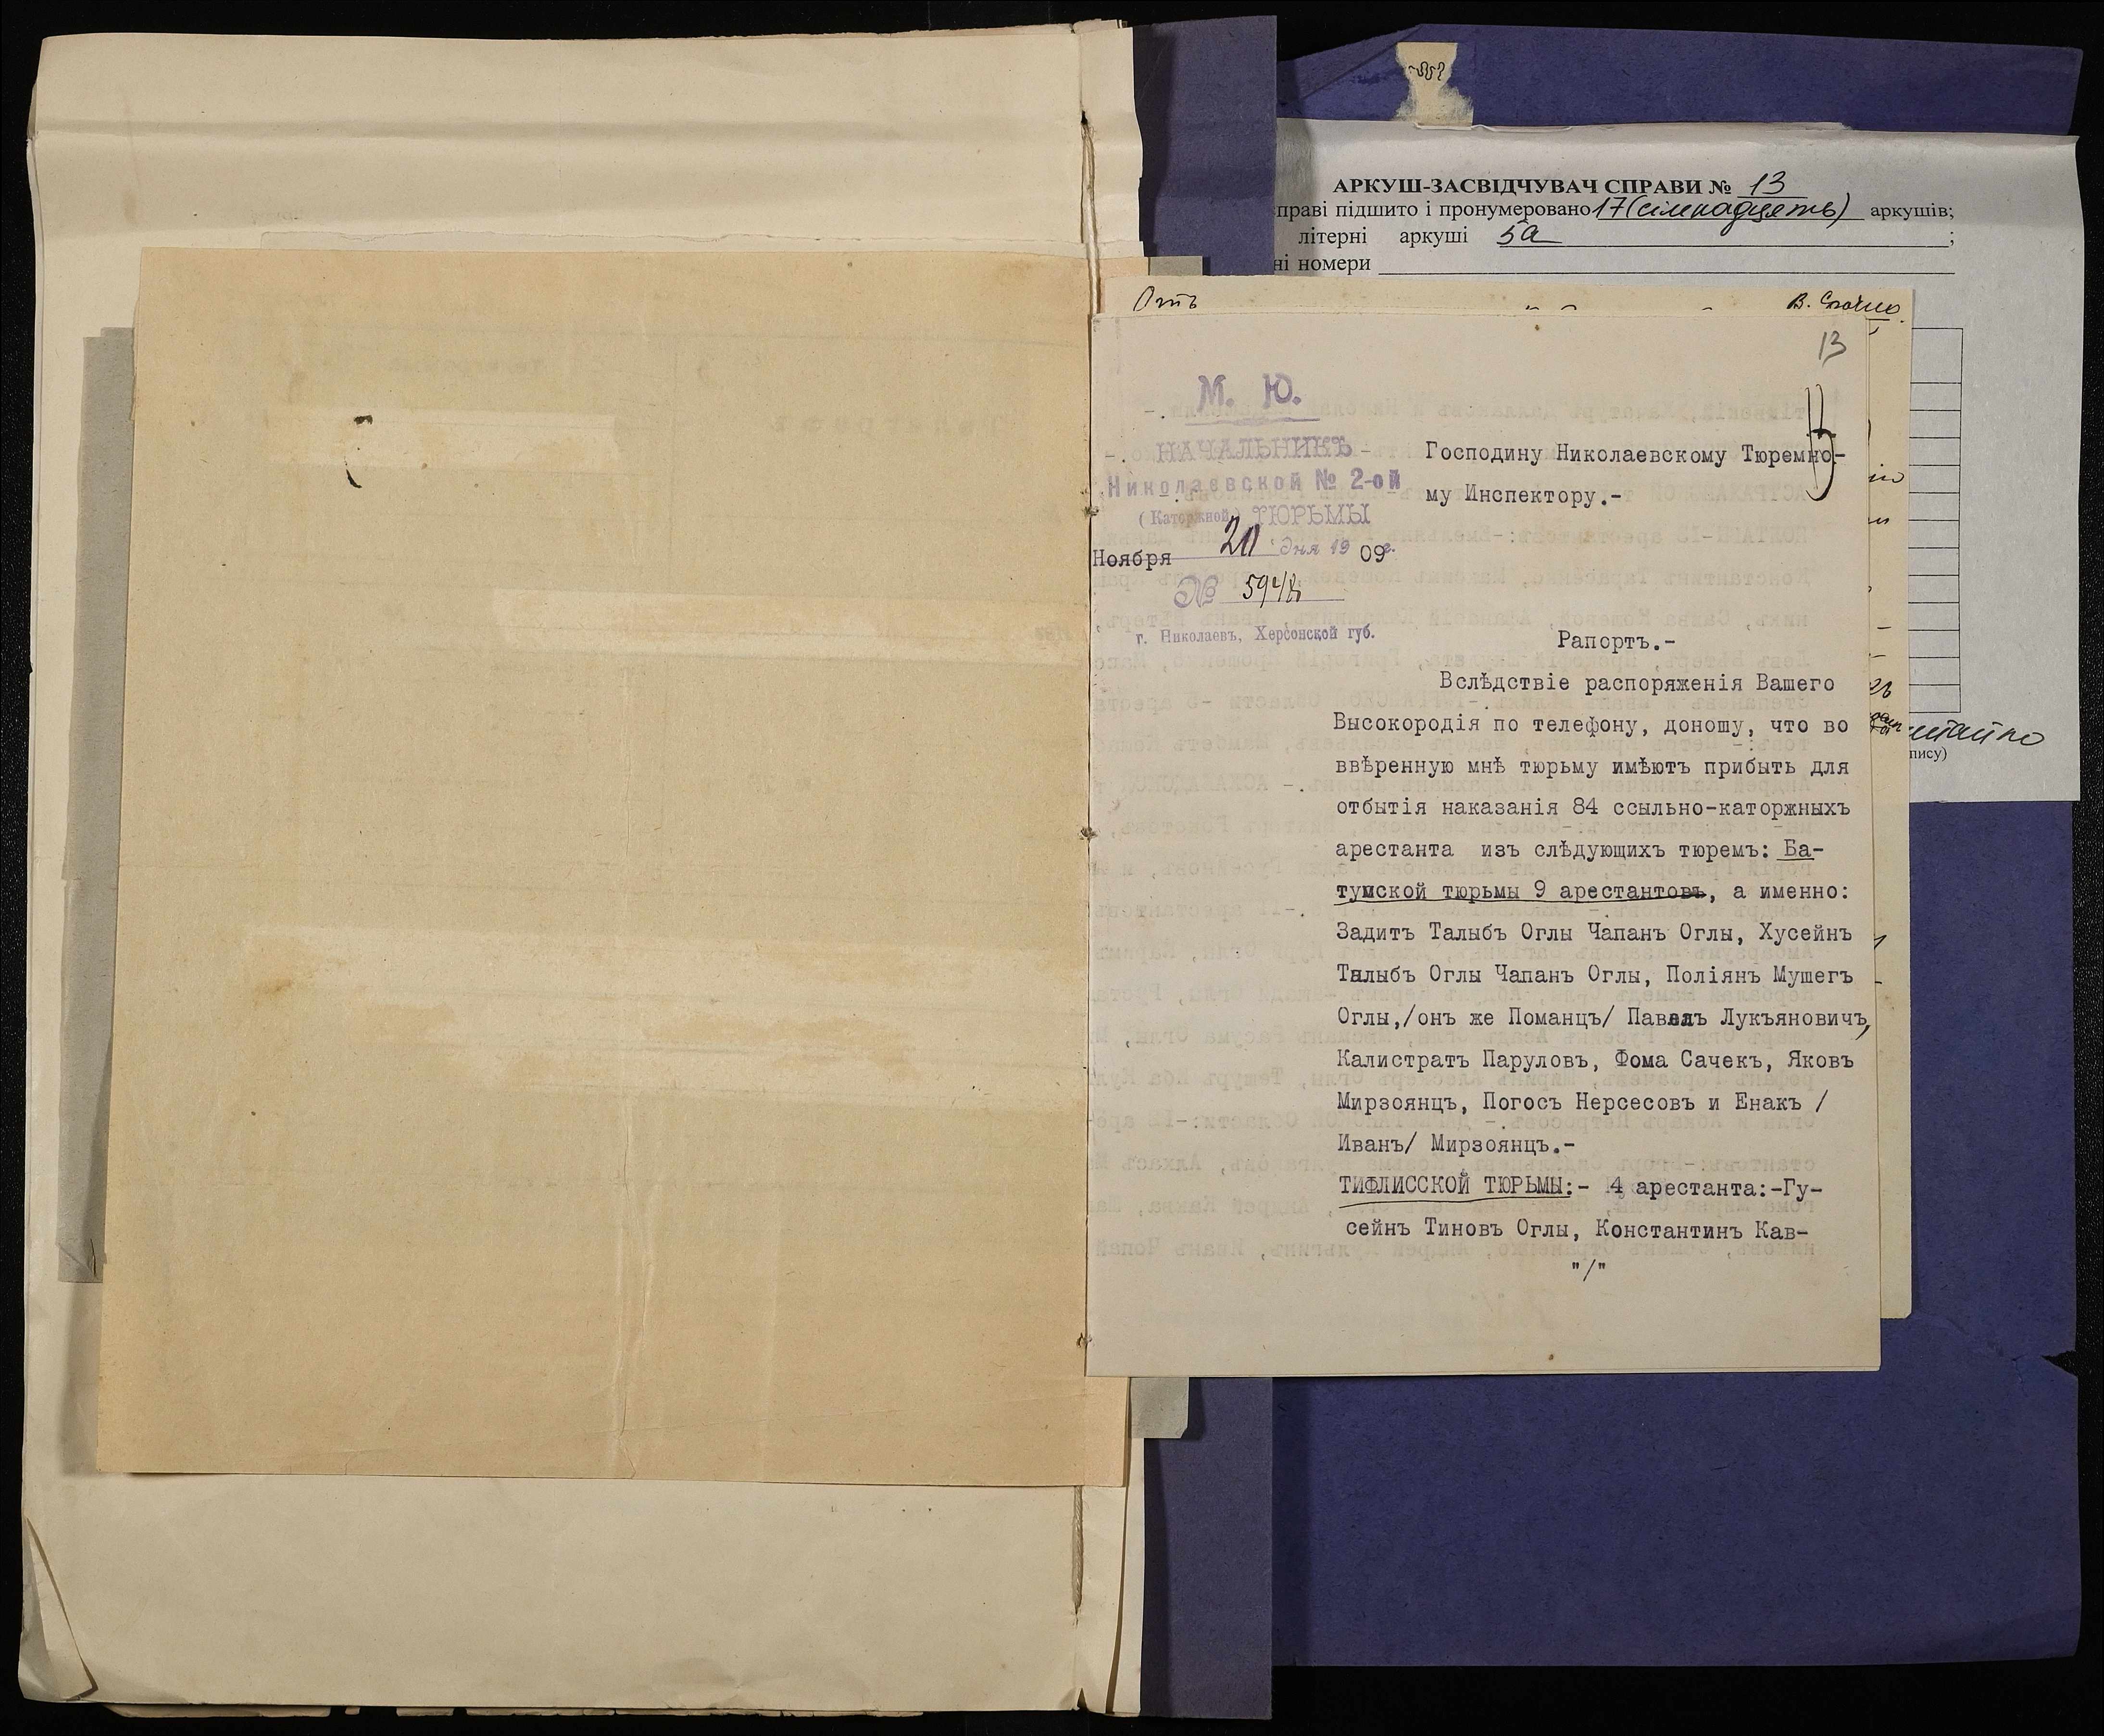 АРКУШ-ЗАСВІДЧУВАЧ СПРАВИ № 13
справі підшито і пронумеровано 17 (сімнадцять) аркушів;
літерні аркуші 5а ;
ні номери
пису)
13
М. Ю.
НАЧАЛЬНИКЪ
Николаевской № 2-ой
(Каторжной) ТЮРЬМЫ
Ноября 20 дня 1909г.
№
г. Николаевъ, Херсонской губ.
Господину Николаевскому Тюремно-
му Инспектору.-
Рапортъ.-
Вслѣдствіе распоряженія Вашего
Высокородія по телефону, доношу, что во
ввѣренную мнѣ тюрьму имѣютъ прибыть для
отбытія наказанія 84 ссыльно-каторжныхъ
арестанта изъ слѣдующихъ тюремъ: Ба-
тумской тюрьмы 9 арестантовъ, а именно:
Задитъ Талыбъ Оглы Чапанъ Оглы, Хусейнъ
Талыбъ Оглы Чапанъ Оглы, Поліянъ Мушегъ
Оглы,/онъ же Поманцъ/ Павелъ Лукъяновичъ,
Калистратъ Паруловъ, Фома Сачекъ, Яковъ
Мирзоянцъ, Погосъ Нерсесовъ и Енакъ /
Иванъ/ Мирзоянцъ.-
ТИФЛИССКОЙ ТЮРЬМЫ:- 4 арестанта:-Гу-
сейнъ Тиновъ Оглы, Константинъ Кав-
"/"